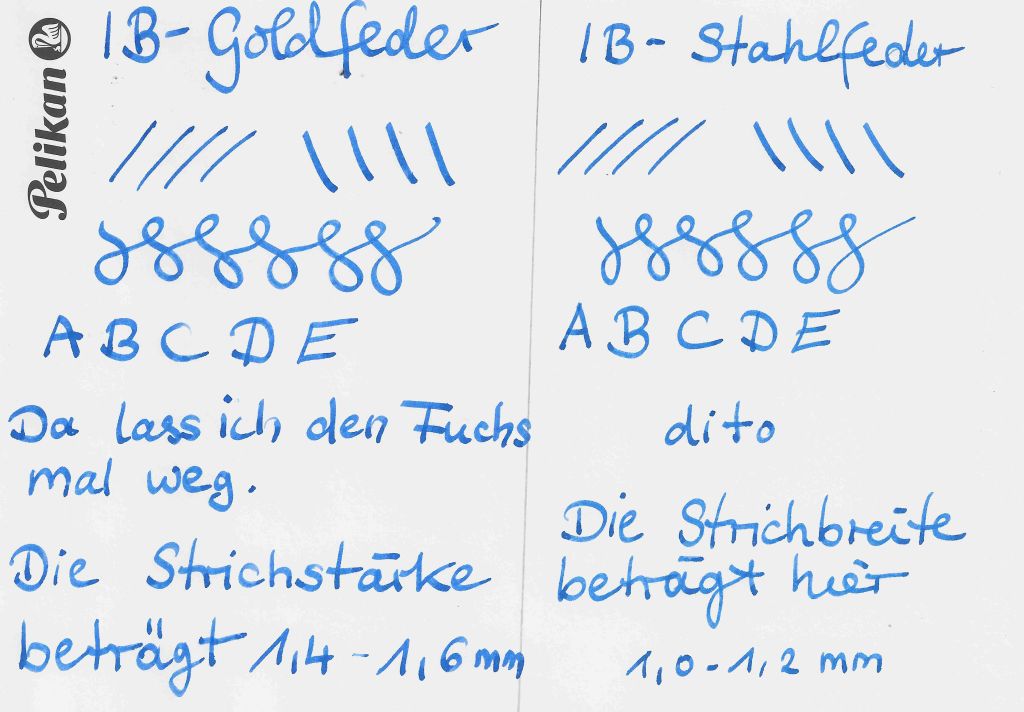 Pelikan
IB-Goldfeder
A B C D E
Da lass ich den Fuchs
mal weg.
Die Strichstärke
beträgt 1,4 - 1,6 mm
IB- Stahlfeder
A B C D E
dito
Die Strichbreite
beträgt hier
1,0 - 1,2 mm